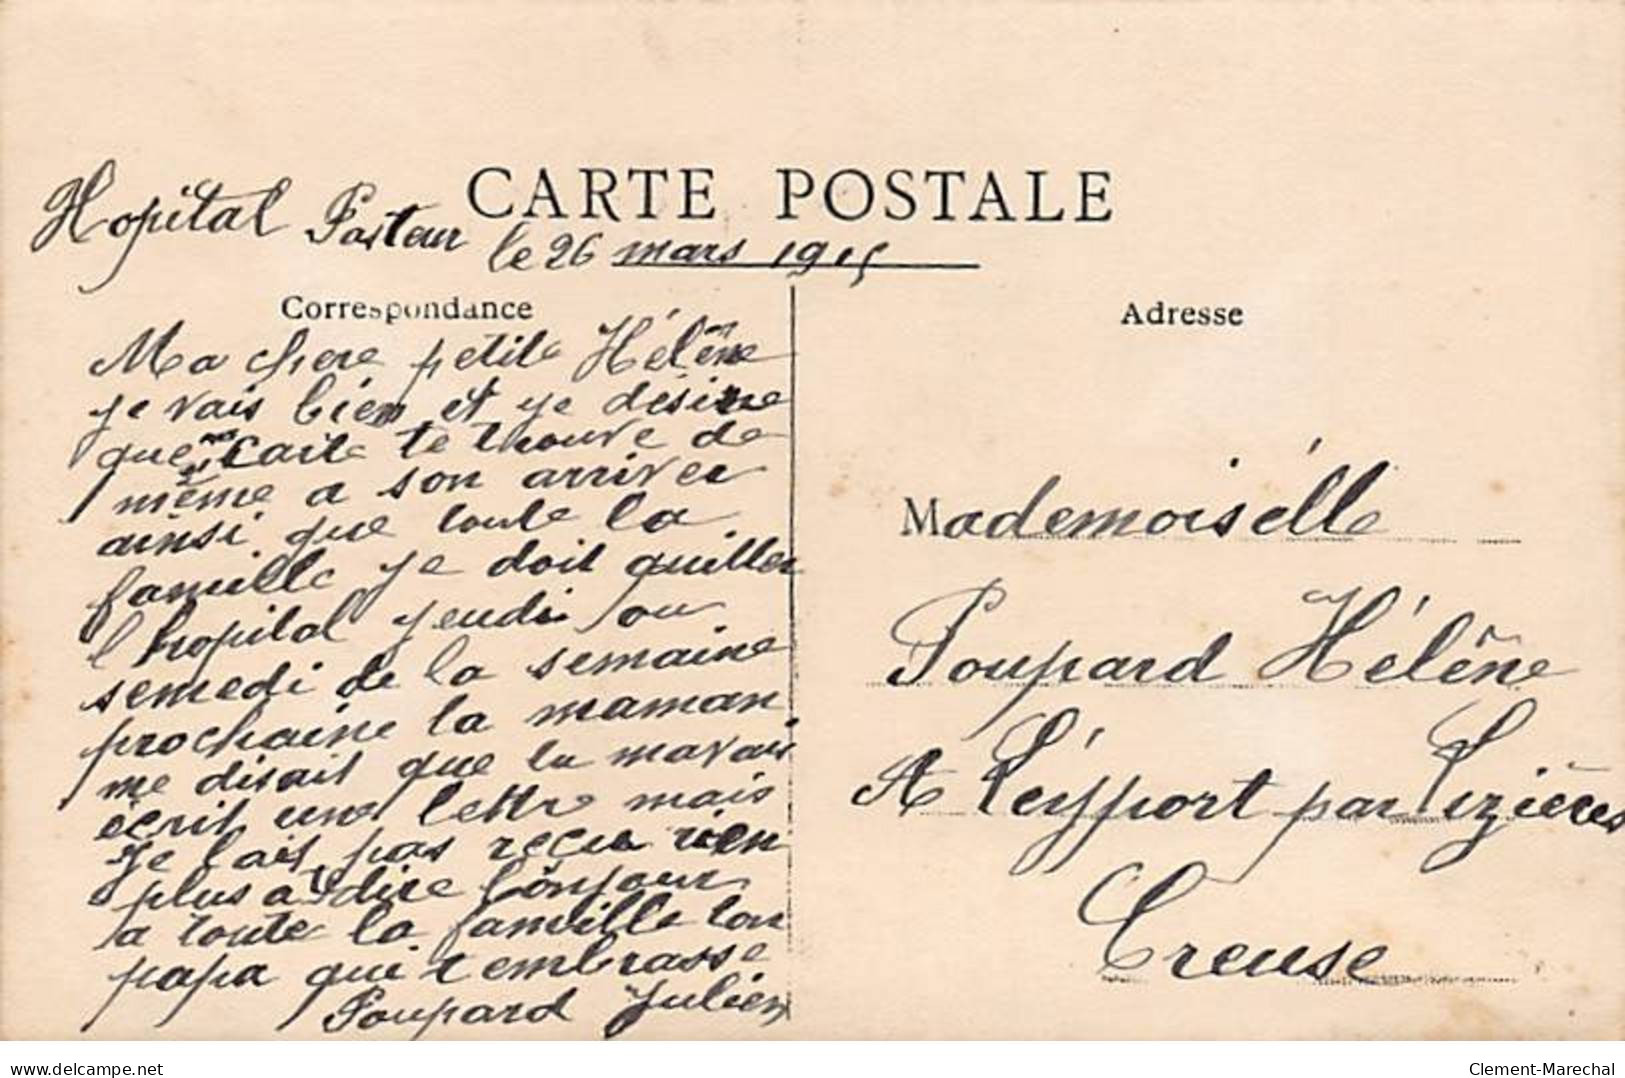 CARTE POSTALE
Hopital Pasteur le 26 mars 1915
Correspondance
Ma chere petite Hélène
je vais bien et je désire
que ma carte te trouve de
même a son arriver
ainsi que toute la
famille je doit quitter
l hopital jeudi ou
semedi de la semaine
prochaine la maman
me disait que tu mavais
ecrit une lettre mais
je lais pas reçu rien
plus a dire bonjour
a toute la famille ton
papa qui t embrasse
Poupard Julien
Adresse
Mademoisélle
Poupard Hélène
A Léyport par Lizières
Creuse
delcampe.net
Clement-Marechal